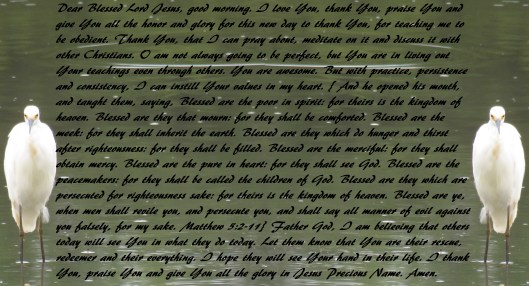 Dear Blessed Lord Jesus, good morning. I love You, thank You, praise You and
give You all the honor and glory for this new day to thank You, for teaching me to
be obedient. Thank You, that I can pray about, meditate on it and discuss it with
other Christians. I am not always going to be perfect, but You are in living out
Your teachings even through others. You are awesome. But with practice, persistence
and consistency, I can instill Your values in my heart. [ And he opened his mouth,
and taught them, saying, Blessed are the poor in spirit: for theirs is the kingdom of
heaven. Blessed are they that mourn: for they shall be comforted. Blessed are the
meek: for they shall inherit the earth. Blessed are they which do hunger and thirst
after righteousness: for they shall be filled. Blessed are the merciful: for they shall
obtain mercy. Blessed are the pure in heart: for they shall see God. Blessed are the
peacemakers: for they shall be called the children of God. Blessed are they which are
persecuted for righteousness sake: for theirs is the kingdom of heaven. Blessed are ye,
when men shall revile you, and persecute you, and shall say all manner of evil against
you falsely, for my sake. Matthew 5:2-11] Father God, I am believing that others
today will see You in what they do today. Let them know that You are their rescue,
redeemer and their everything. I hope they will see Your hand in their life. I thank
You, praise You and give You all the glory in Jesus Precious Name. Amen.